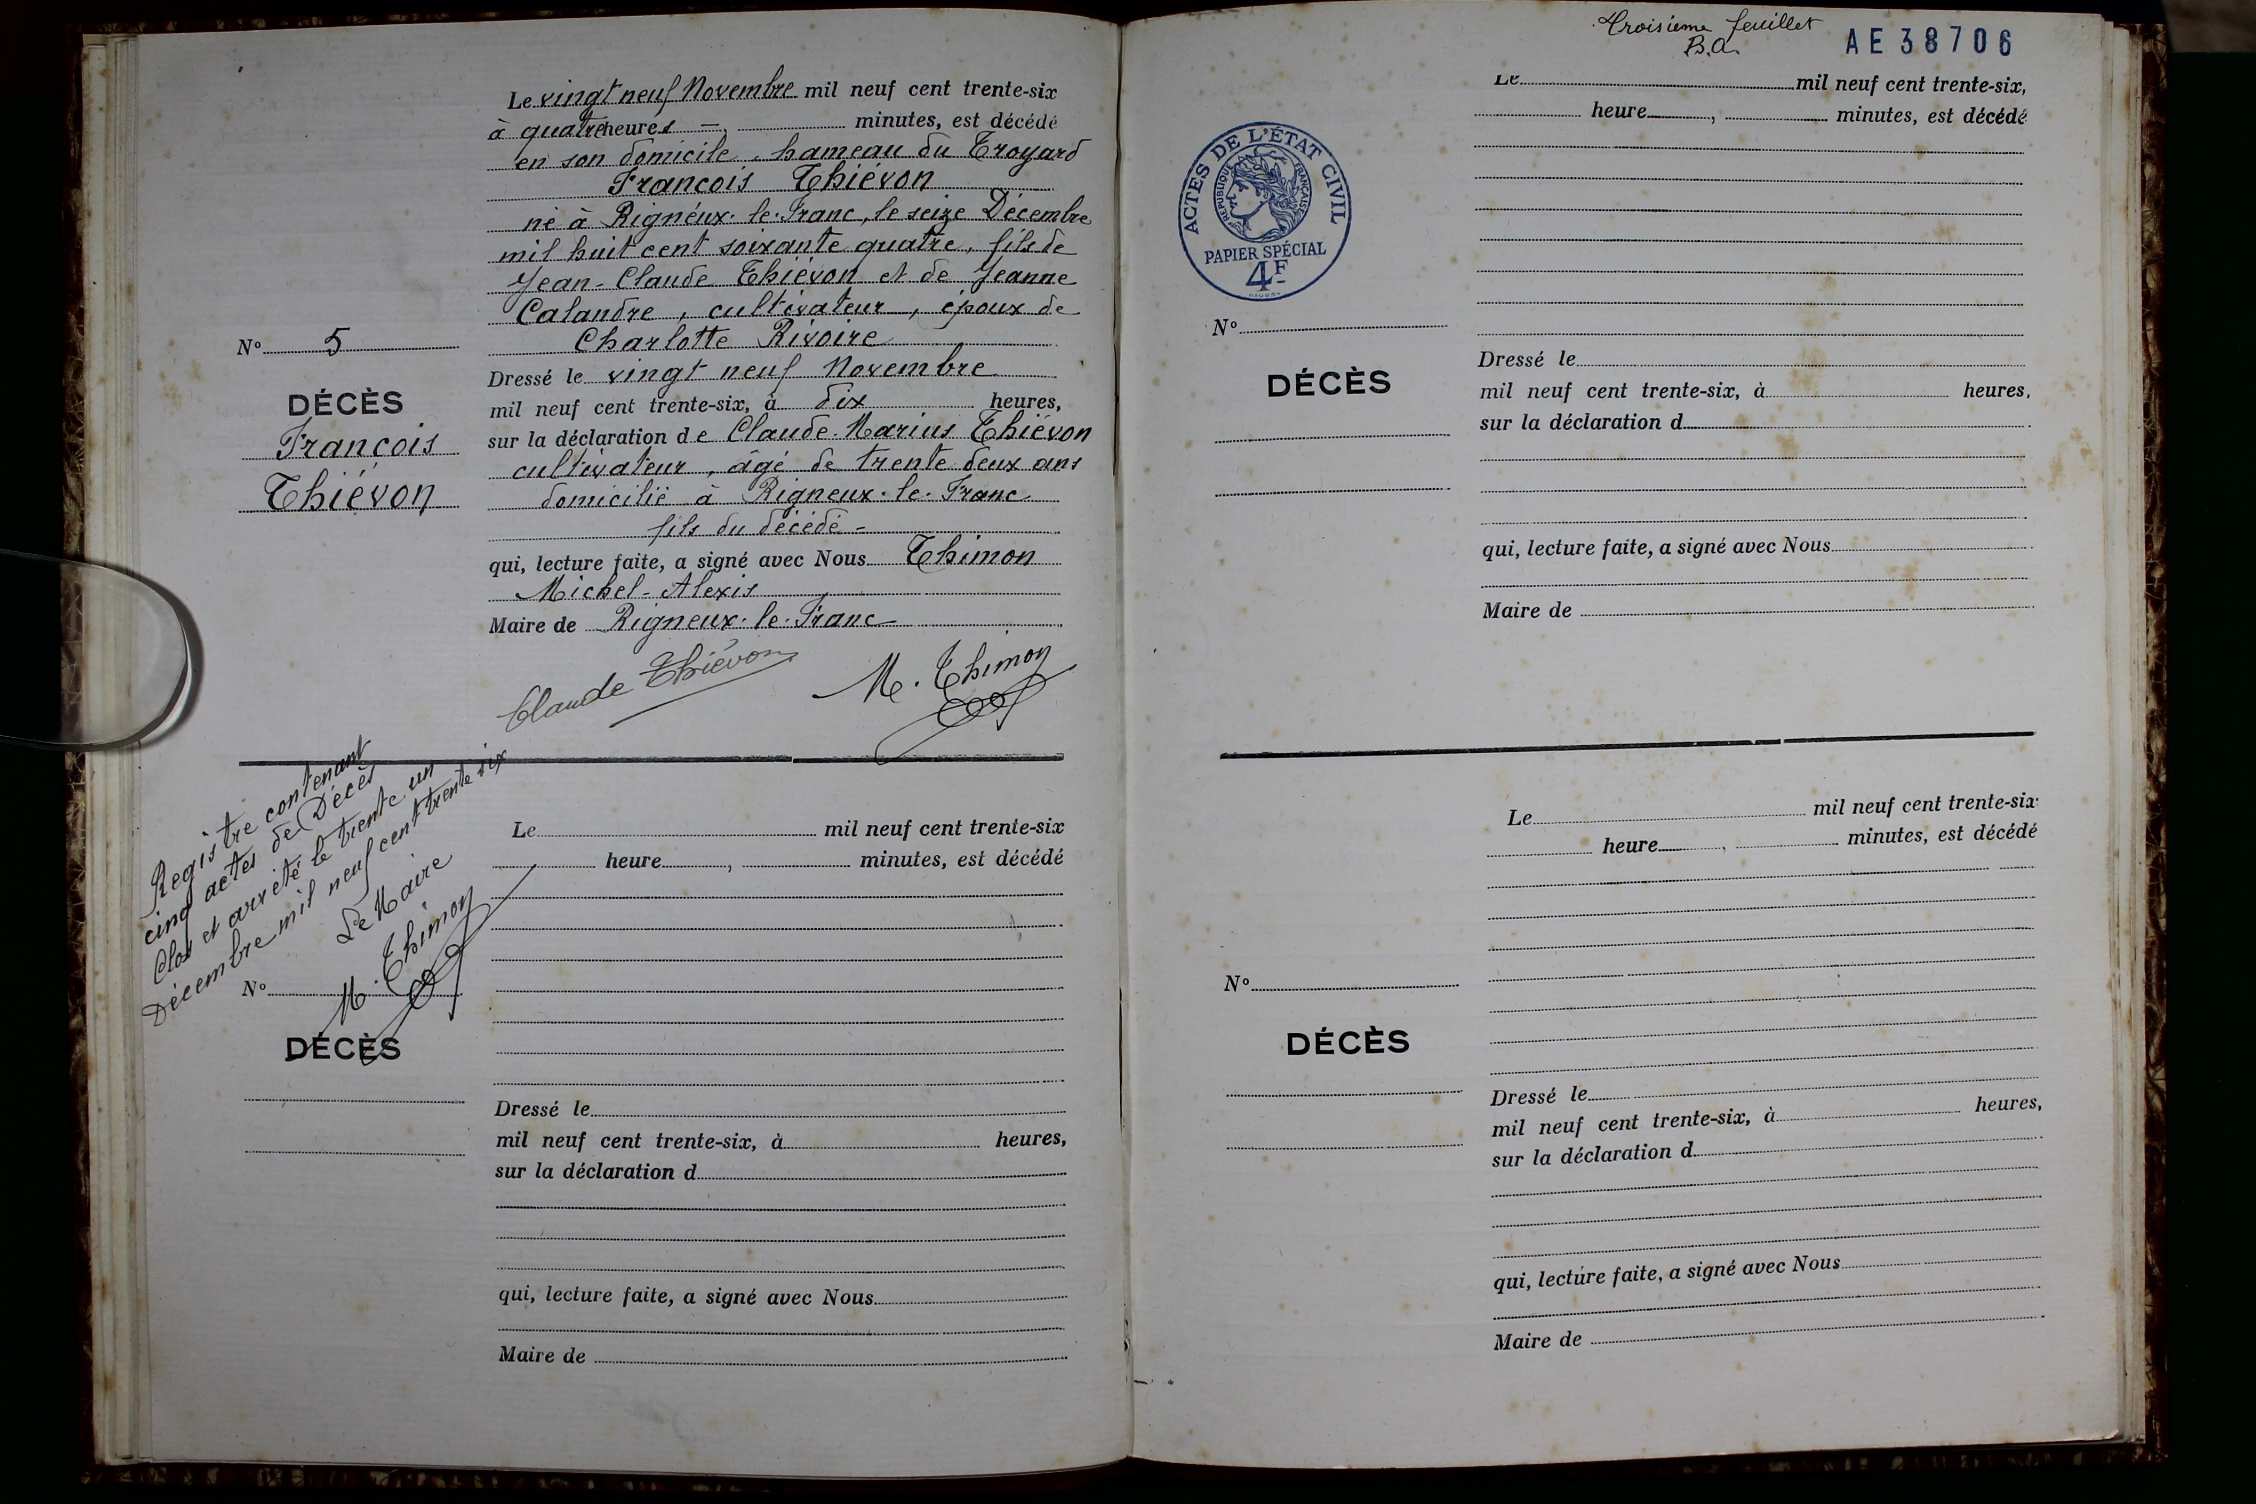 Le vingt neuf Novembre mil neuf cent trente-six
à quatre heures — minutes, est décédé
en son domicile, hameau du Troyard
François Thiévon
né à Rignéux-le-Franc, le seize Décembre
mil huit cent soixante quatre, fils de
Jean-Claude Thiévon et de Jeanne
Calandre, cultivateur, époux de
Charlotte Rivoire
Dressé le vingt neuf Novembre
mil neuf cent trente-six, à dix heures,
sur la déclaration de Claude-Marius Thiévon
cultivateur, âgé de trente deux ans
domicilié à Rigneux-le-Franc
fils du décédé -
qui, lecture faite, a signé avec Nous Thimon
Michel-Alexis
Maire de Rigneux-le-Franc
Claude Thiévon
M. Thimon
No 5
DÉCÈS
François
Thiévon
Registre contenant
cinq actes de Décès
Clos et arrêté le trente un
Décembre mil neuf cent trente six
Le Maire
M. Thimon
No
DÉCÈS
Le mil neuf cent trente-six
heure , minutes, est décédé
Dressé le
mil neuf cent trente-six, à heures,
sur la déclaration d
qui, lecture faite, a signé avec Nous
Maire de
Troisième feuillet
B.A.
AE38706
ACTES DE L'ÉTAT CIVIL
RÉPUBLIQUE FRANÇAISE
PAPIER SPÉCIAL
4F
No
DÉCÈS
Le mil neuf cent trente-six,
heure , minutes, est décédé
Dressé le
mil neuf cent trente-six, à heures,
sur la déclaration d
qui, lecture faite, a signé avec Nous
Maire de
No
DÉCÈS
Le mil neuf cent trente-six
heure , minutes, est décédé
Dressé le
mil neuf cent trente-six, à heures,
sur la déclaration d
qui, lecture faite, a signé avec Nous
Maire de